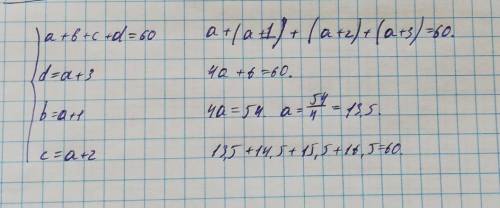 a+b+c+d=60
d=a+3
b=a+1
c=a+2
a+(a+1)+(a+2)+(a+3)=60.
4a+6=60.
4a=54. a=54/4=13,5.
13,5+14,5+15,5+16,5=60.